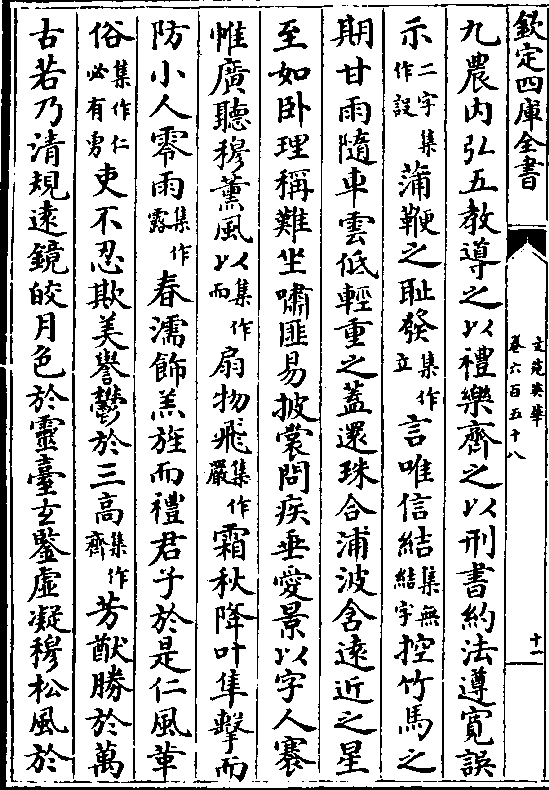 欽定四庫全書
文苑英華
卷六百五十八
十一
九農内弘五教導之以禮樂齊之以刑書約法遵寛誤
示二字集作設蒲鞭之恥發集作立言唯信結集無結字控竹馬之
期甘雨隨車雲低輕重之蓋還珠合浦波含遠近之星
至如卧理稱難坐嘯匪易披裳問疾垂愛景以字人褰
帷廣聽穆薰風以集作而扇物飛集作嚴霜秋降叶隼擊而
防小人零雨集作露春濡飾羔旌而禮君子於是仁風革
俗集作仁必有勇吏不忍欺美譽鬱於三高集作齊芳猷勝於萬
古若乃清規遠鏡皎月色於靈臺玄鑒虚凝穆松風於